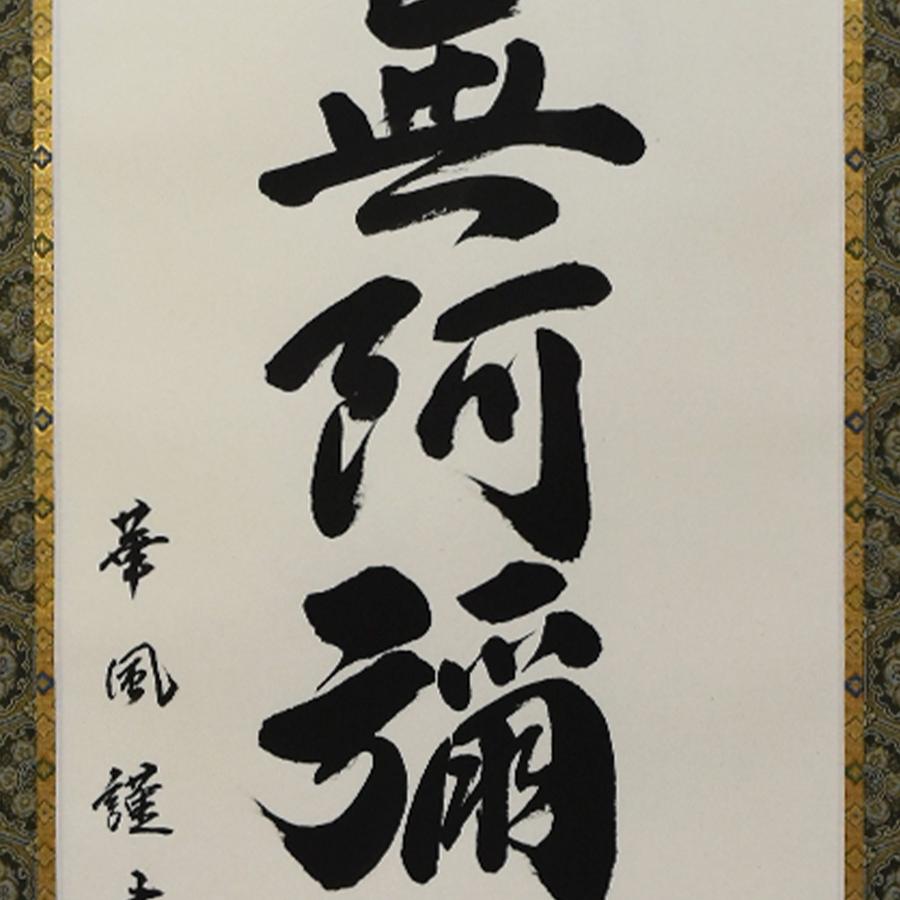 無阿彌
華風謹